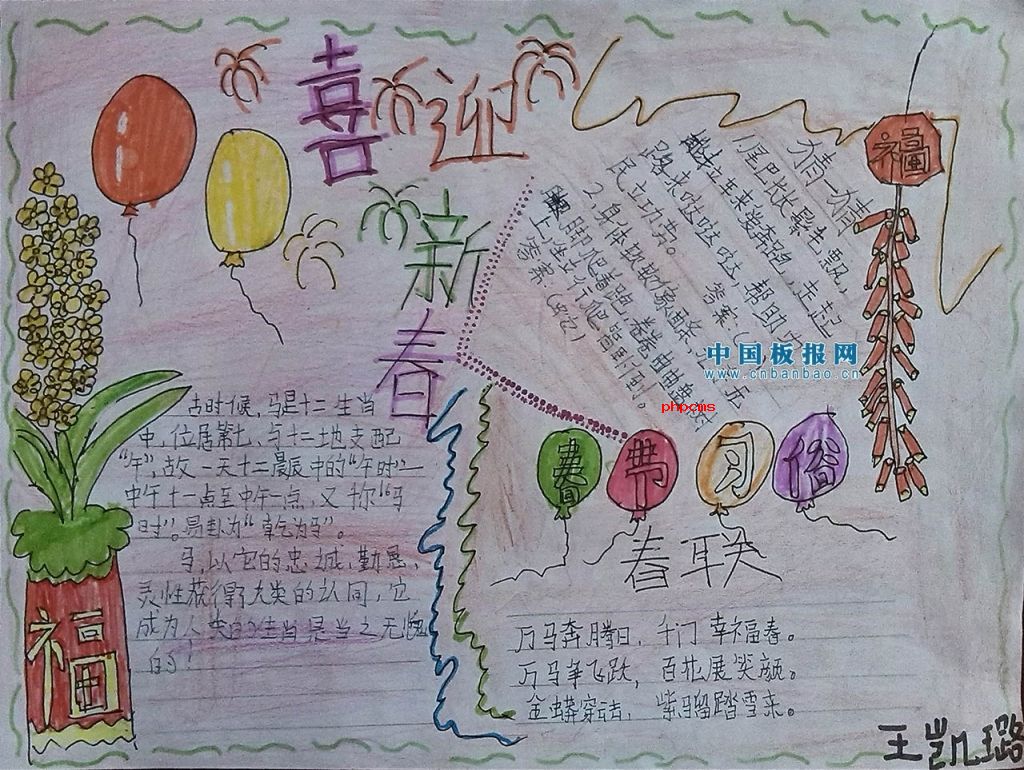 喜迎
新
春
福
猜一猜
1尾巴长长鬃毛飘,
站立车来爱奔跑,走起
路来哒哒哒,帮助
民立功劳。答案:(
2身体软软像面条,
脚爬着跑,卷卷曲曲
上,坐立行爬皆卧倒。
答案:(蛇)
中国板报网
www.cnbanbao.cn
phpcms
古时候,马是十二生肖
中,位居第七、与十二地支配
“午”,故一天十二晨辰中的“午时”—
中午十一点至中午一点,又称“马
时”。易卦为“乾为马”。
马,以它的忠诚、勤恳、
灵性获得了人类的认同,它
成为人类的生肖是当之无愧
的!
福
春节习俗
春联
万马奔腾日,千门幸福春。
万马争飞跃,百花展笑颜。
金蟒穿云去,紫骝踏雪来。
王凯璐